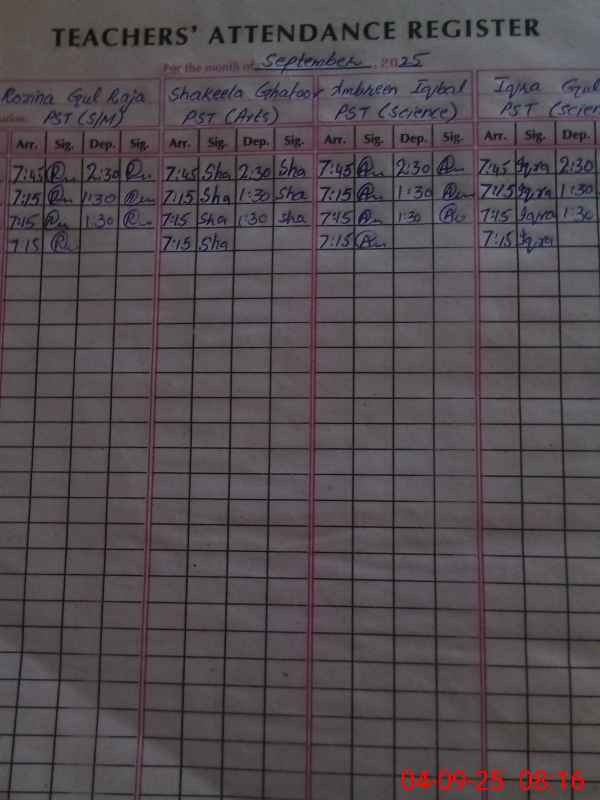 TEACHERS' ATTENDANCE REGISTER
For the month of September 2025
Rozina Gul Raja Shakeela Ghafoor Ambreen Iqbal Iqra Gul
PST (S/M) PST (Arts) PST (Science) PST (Scien
Arr. Sig. Dep. Sig. Arr. Sig. Dep. Sig. Arr. Sig. Dep. Sig. Arr. Sig. Dep.
7:45 2:30 7:45 Sha 2:30 Sha 7:45 2:30 7:45 Iqra 2:30
7:15 1:30 7:15 Sha 1:30 Sha 7:15 1:30 7:15 Iqra 1:30
7:15 1:30 7:15 Sha 1:30 Sha 7:15 1:30 7:15 Iqra 1:30
7:15 7:15 Sha 7:15 7:15 Iqra
04-09-25 08:16